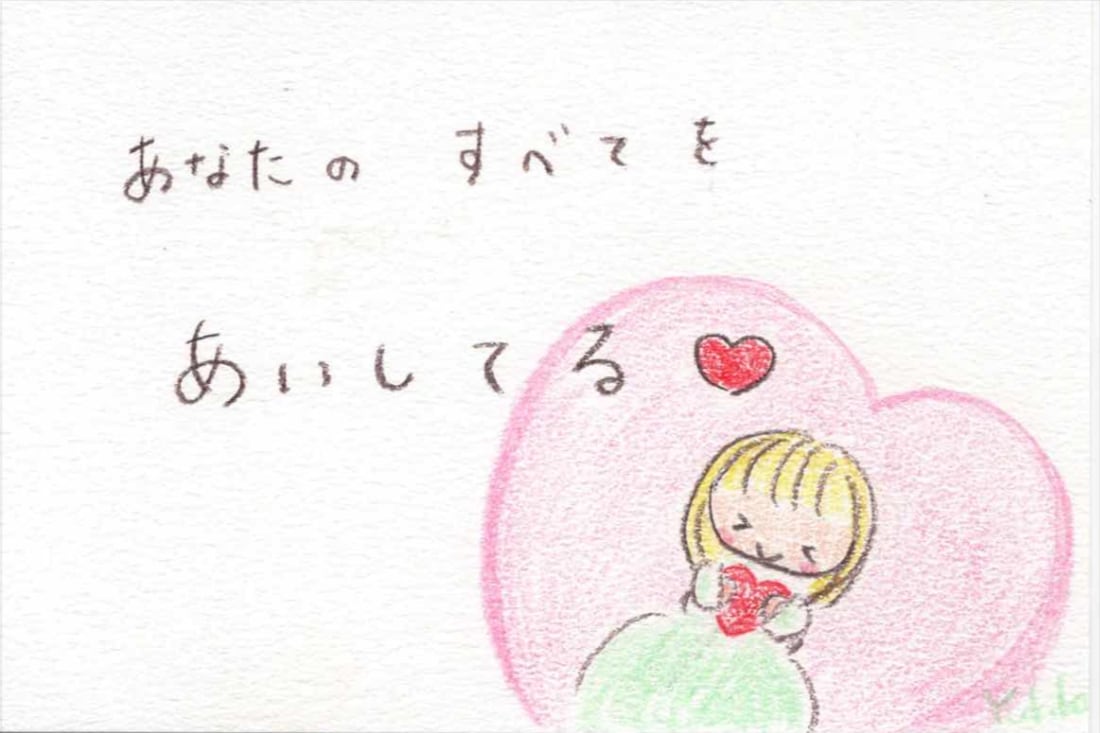 あなたの すべてを
あいしてる♥